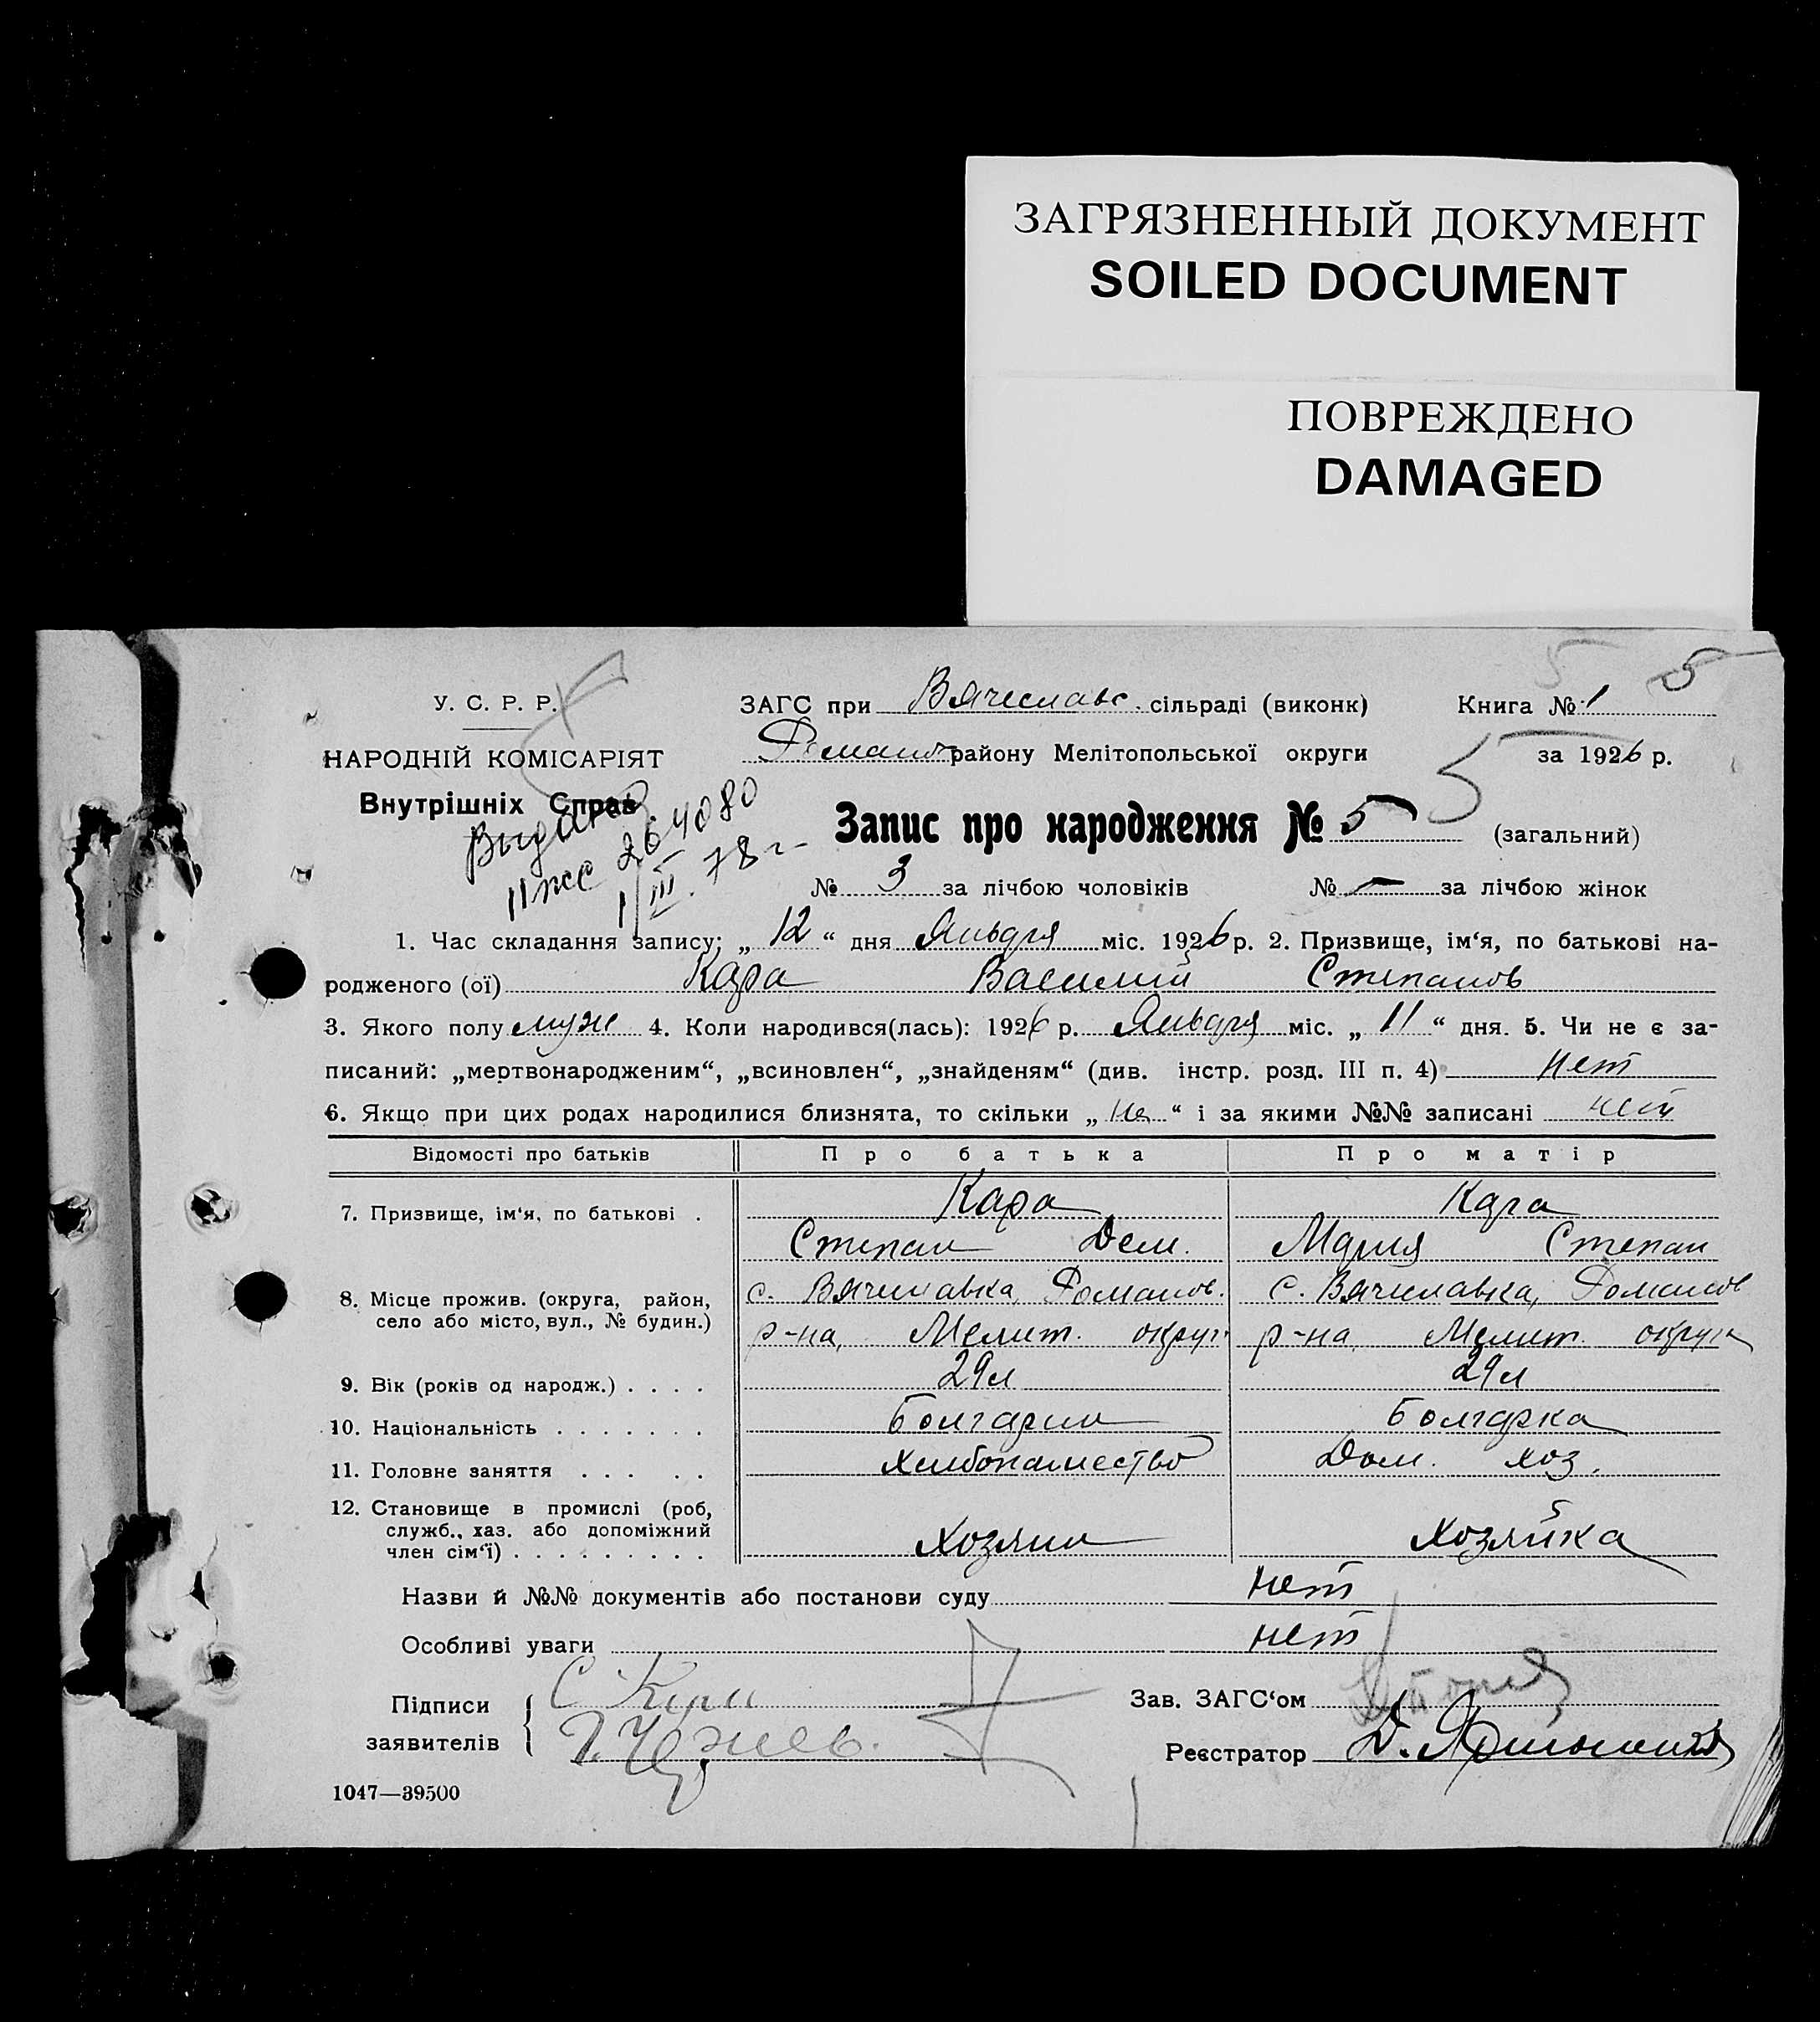 ЗАГРЯЗНЕННЫЙ ДОКУМЕНТ
SOILED DOCUMENT
ПОВРЕЖДЕНО
DAMAGED
5 5
У. С. Р. Р.
НАРОДНІЙ КОМІСАРІЯТ
Внутрішніх Справ
Выдано
II жс 264080
1/III. 78 г
ЗАГС при Вячеславс. сільраді (виконк) Книга № 1
Романов району Мелітопольської округи за 1926 р.
Запис про народження № 5 5 (загальний)
№ 3 за лічбою чоловіків № — за лічбою жінок
1. Час складання запису; „ 12 “ дня Января міс. 1926 р. 2. Призвище, ім‘я, по батькові на-
родженого (ої) Кара Василий Степанов
3. Якого полу муж 4. Коли народився(лась): 1926 р. Января міс. „ 11 “ дня. 5. Чи не є за-
писаний: „мертвонародженим“, „всиновлен“, „знайденям“ (див. інстр. розд. III п. 4) нет
6. Якщо при цих родах народилися близнята, то скільки „ “ і за якими №№ записані нет
Відомості про батьків Про батька Про матір
7. Призвище, ім‘я, по батькові . Кара Кара
Степан Дем. Мария Степан
8. Місце прожив. (округа, район, с. Вячеславка, Романов. с. Вячеславка, Романов
село або місто, вул., № будин.) р-на, Мелит. округ р-на, Мелит. округа
9. Вік (років од народж.) . . . . 29 л 29 л
10. Національність . . . . . . . Болгарин Болгарка
11. Головне заняття . . . . . Хлебопашество Дом. хоз.
12. Становище в промислі (роб,
служб., хаз. або допоміжний
член сім‘ї) . . . . . . . . . Хозяин Хозяйка
Назви й №№ документів або постанови суду нет
Особливі уваги нет
Підписи С Кара Зав. ЗАГС‘ом
заявителів Реєстратор Д.
1047—39500